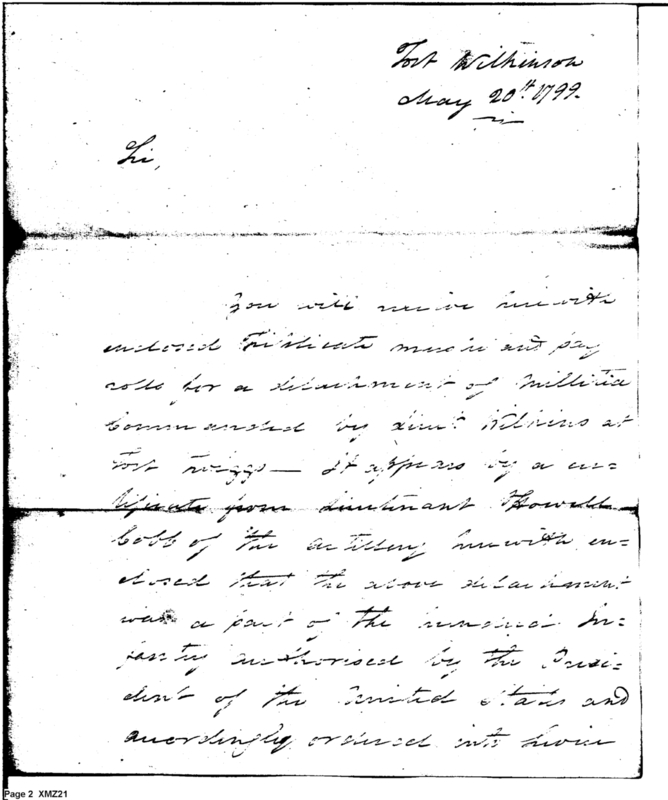 Fort Wilkinson
May 20th 1799.
Sir,
You will receive herewith
enclosed Triplicate muster and pay
rolls for a detachment of Millitia
Commanded by Lieut. Wilkins at
Fort Twiggs — It appears by a cer=
tificate from Lieutenant Howell
Cobb of the artillery herewith en=
closed that the above detachment
was a part of the hundred In=
fantry authorised by the Presi=
dent of the United States and
accordingly ordered into service
Page 2 XMZ21